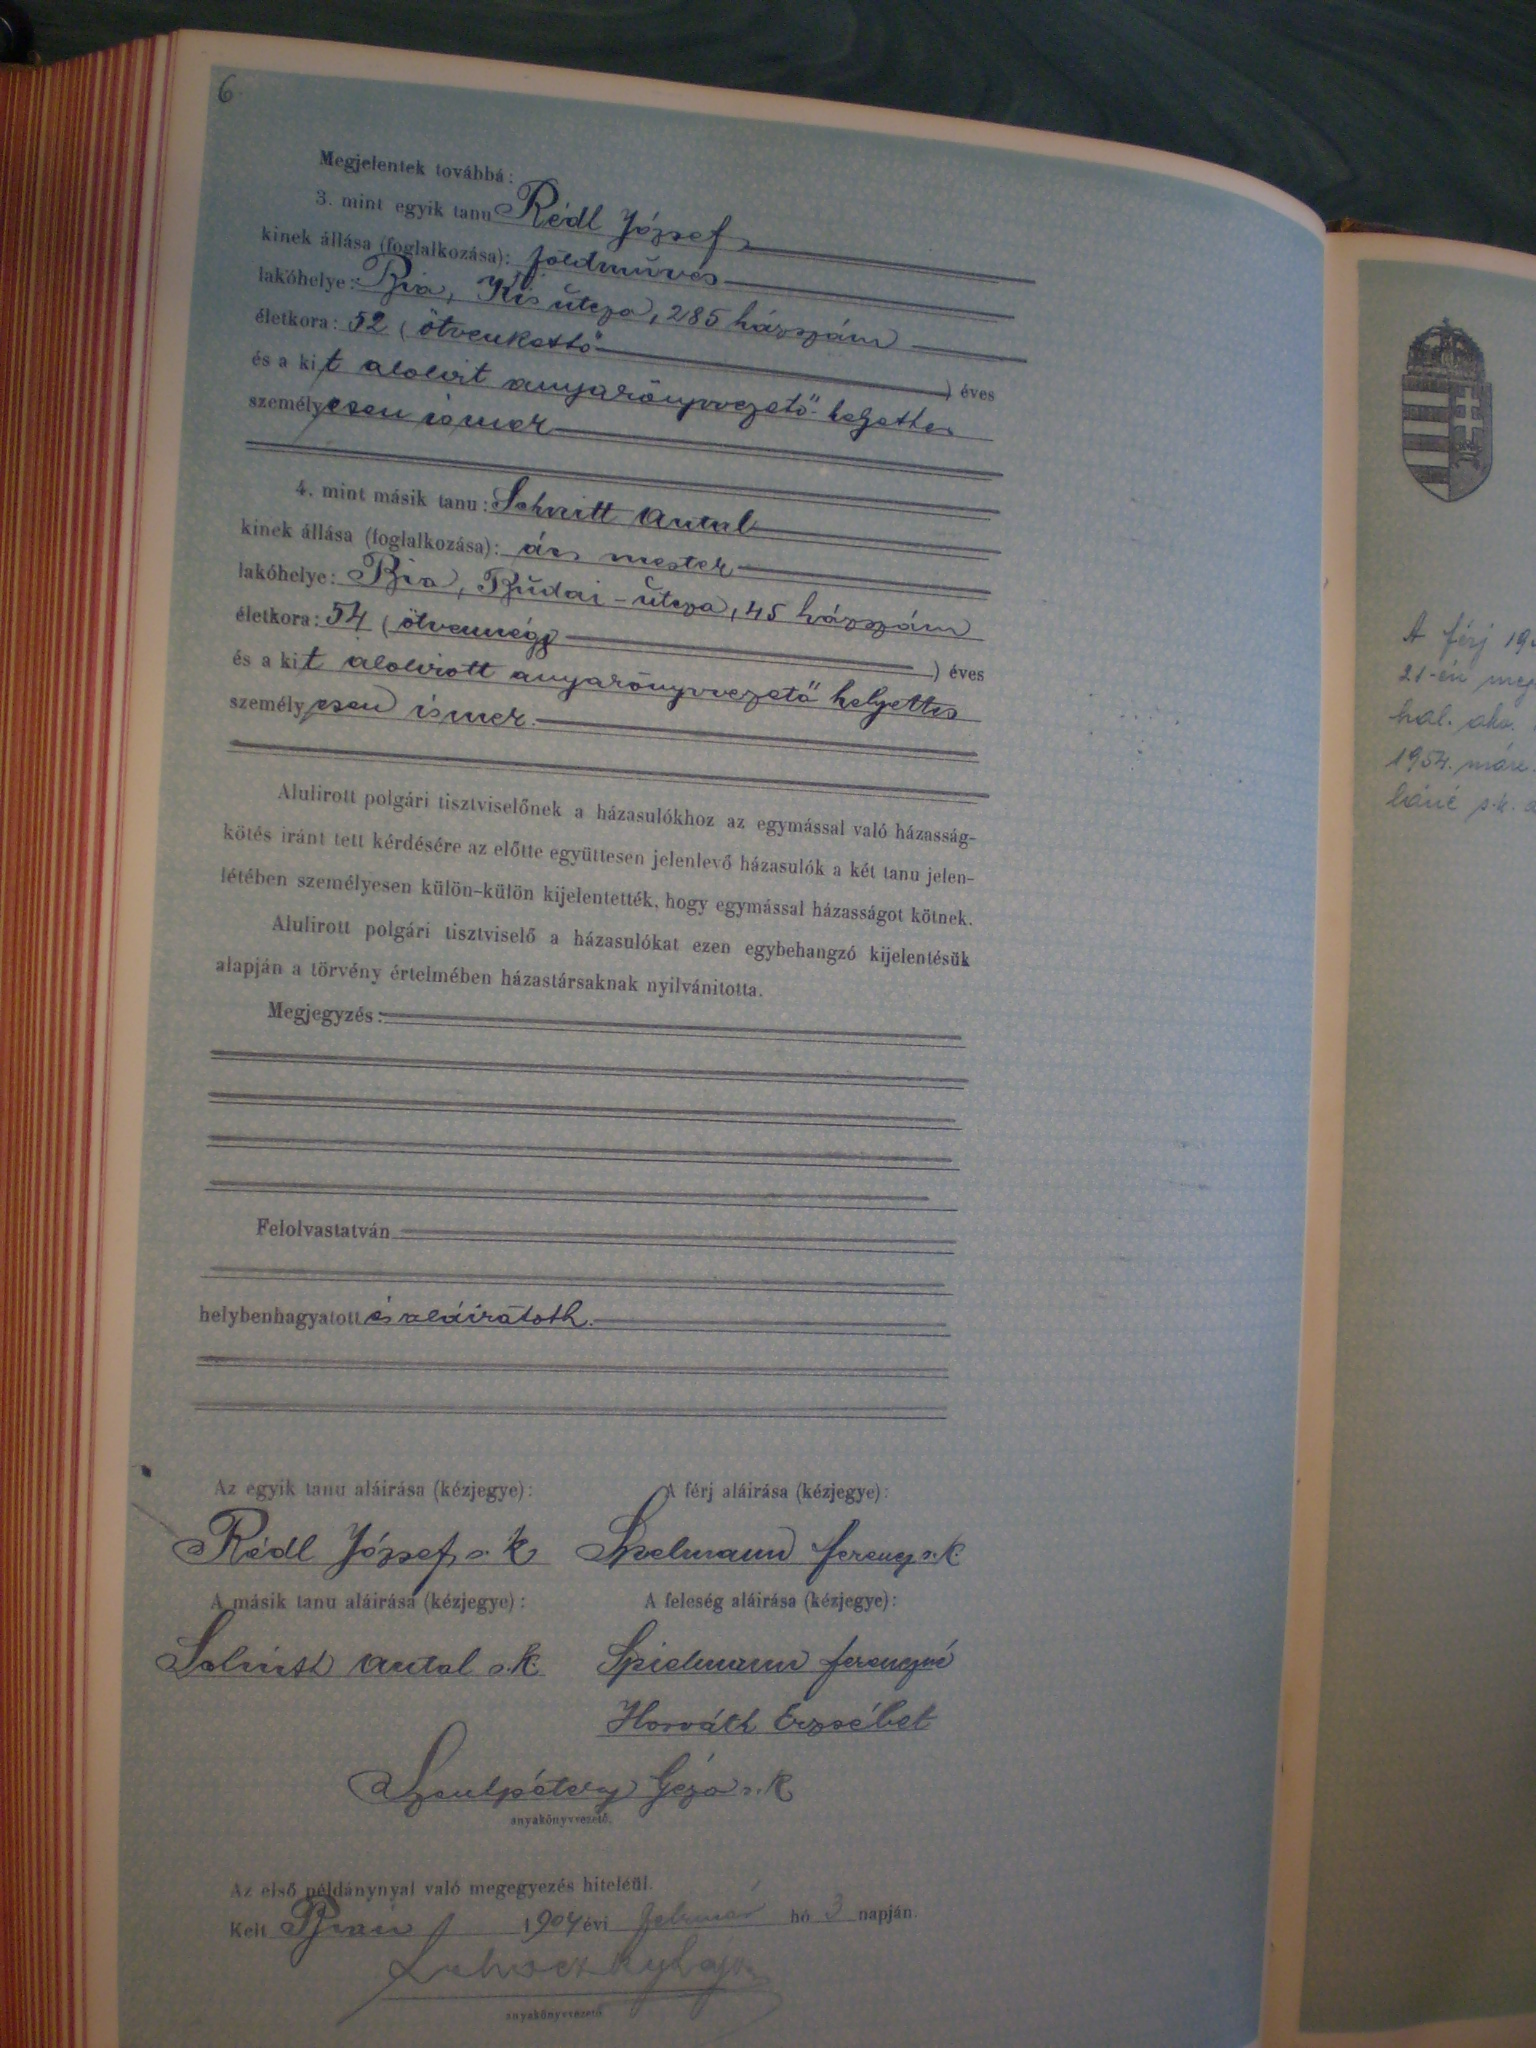 6.
Megjelentek továbbá:
3. mint egyik tanu Rédl József
kinek állása (foglalkozása): földmüvés
lakóhelye: Bia, Kis utcza, 285 házszám
életkora: 52 (ötvenkettő) éves
és a kit alolirt anyakönyvvezető-helyettes
személyesen ismer
4. mint másik tanu: Schmitt Antal
kinek állása (foglalkozása): ács mester
lakóhelye: Bia, Budai-utcza, 45 házszám
életkora: 54 (ötvennégy) éves
és a kit alolirott anyakönyvvezető helyettes
személyesen ismer.
Alulirott polgári tisztviselőnek a házasulókhoz az egymással való házasság-
kötés iránt tett kérdésére az előtte együttesen jelenlevő házasulók a két tanu jelen-
létében személyesen külön-külön kijelentették, hogy egymással házasságot kötnek.
Alulirott polgári tisztviselő a házasulókat ezen egybehangzó kijelentésük
alapján a törvény értelmében házastársaknak nyilvánitotta.
Megjegyzés:
Felolvastatván
helybenhagyatott és aláiratoth.
Az egyik tanu aláirása (kézjegye): A férj aláirása (kézjegye):
Rédl József s. k Spelmann Ferencz s. k.
A másik tanu aláirása (kézjegye): A feleség aláirása (kézjegye):
Antal s. k. Spielmann Ferenczné
Horváth Erzsébet
Szentpétery Géza s. k
anyakönyvvezető.
Az első példánynyal való megegyezés hiteléül.
Kelt Bián 1904 évi február hó 3 napján.
anyakönyvvezető
A férj 19
21-én meg
hal. akv.
1954. márc.
s. k.